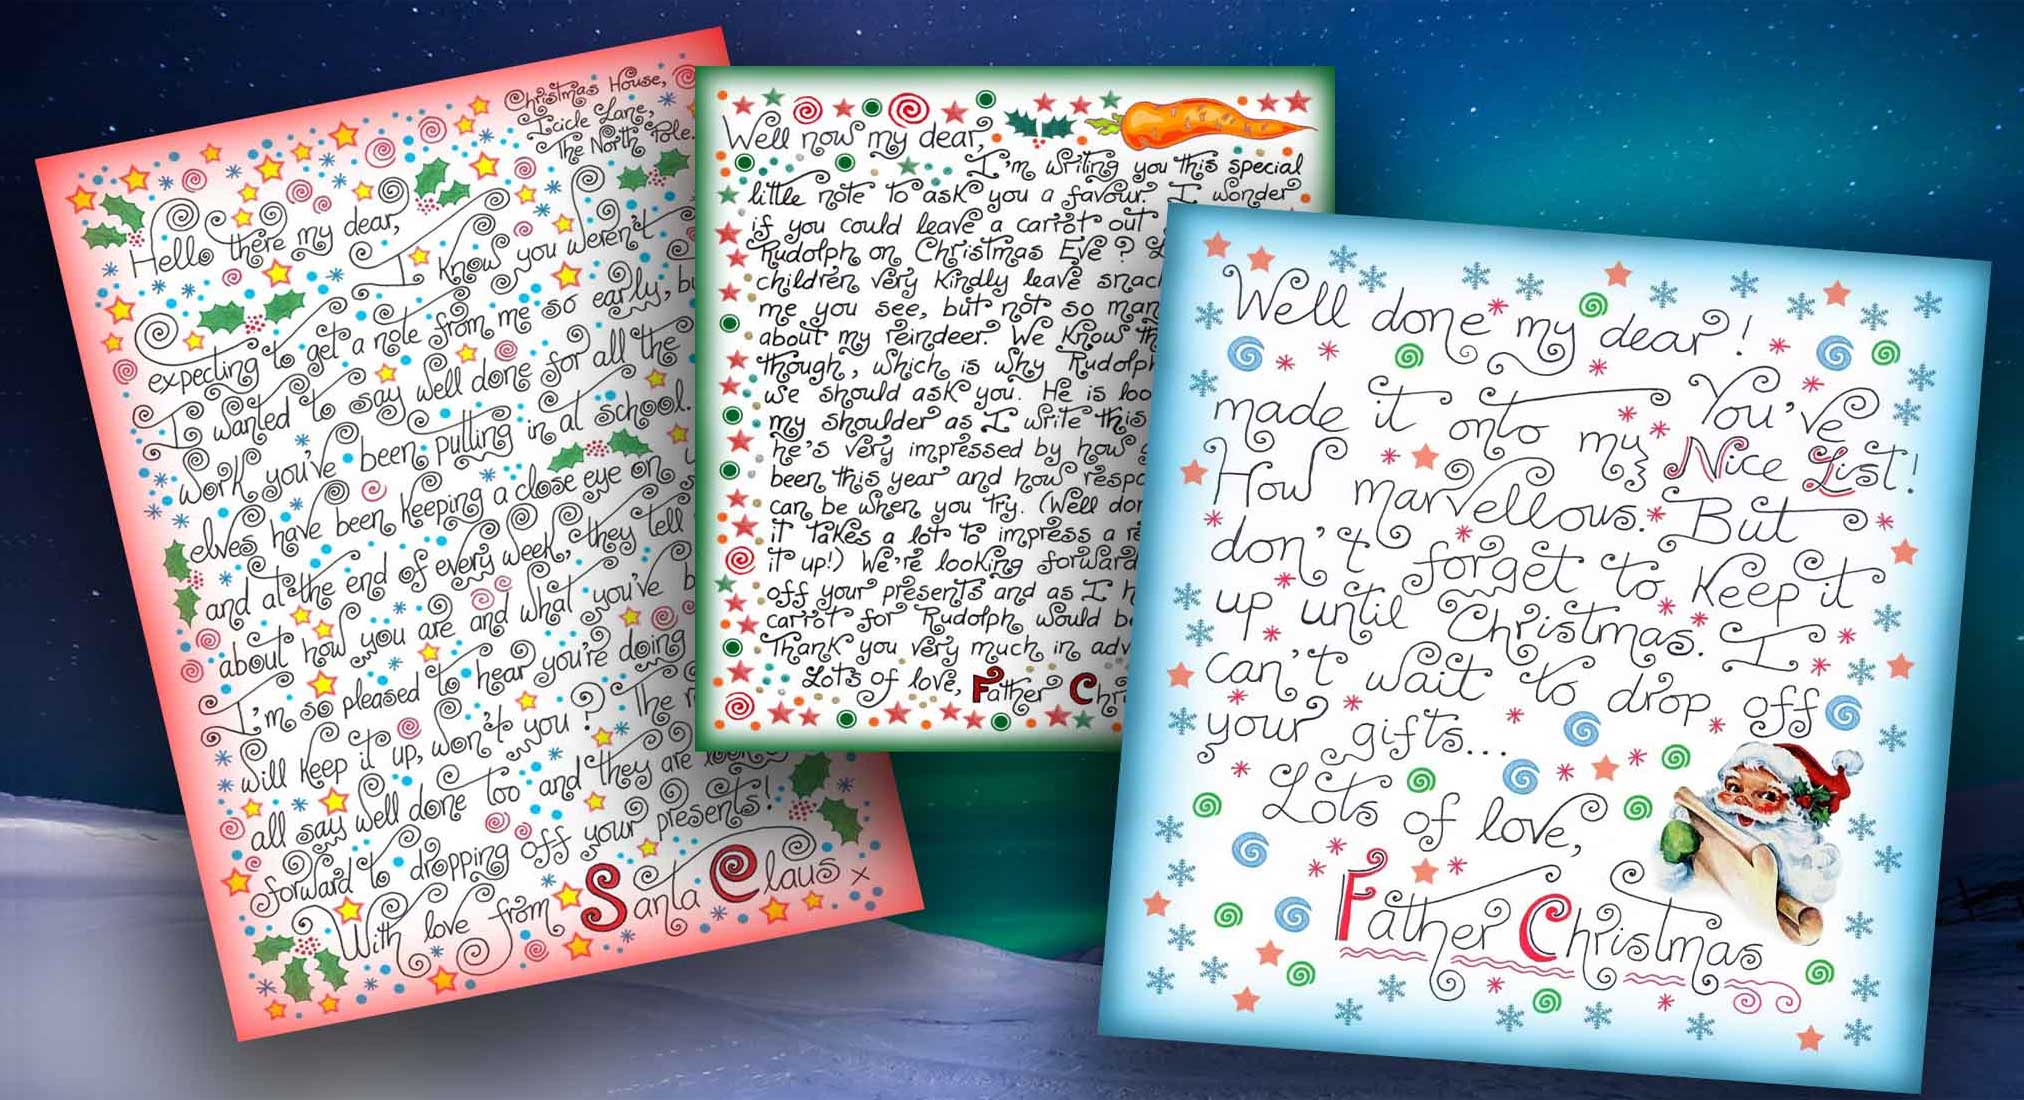 Christmas House,
Icicle Lane,
The North Pole.
Hello there my dear,
I know you weren't
expecting to get a note from me so early,
I wanted to say well done for all the
work you've been putting in at school.
elves have been keeping a close eye on
and at the end of every week, they tell
about how you are and what you've
I'm so pleased to hear you're doing
will keep it up, won't you? The
all say well done too and they are
forward to dropping off your presents!
With love from Santa Claus x
Well now my dear,
I'm writing you this special
little note to ask you a favour. I wonder
if you could leave a carrot out
Rudolph on Christmas Eve?
children very kindly leave
me you see, but not so
about my reindeer. We know
though, which is why
we should ask you. He is
my shoulder as I write this
he's very impressed by how
been this year and how
can be when you try. (Well
it takes a lot to impress a
it up!) We're looking forward
off your presents and as I
carrot for Rudolph would
Thank you very much in
Lots of love, Father
Well done my dear!
You've
made it onto my Nice List!
How marvellous. But
don't forget to keep it
up until Christmas. I
can't wait to drop off
your gifts...
Lots of love,
Father Christmas